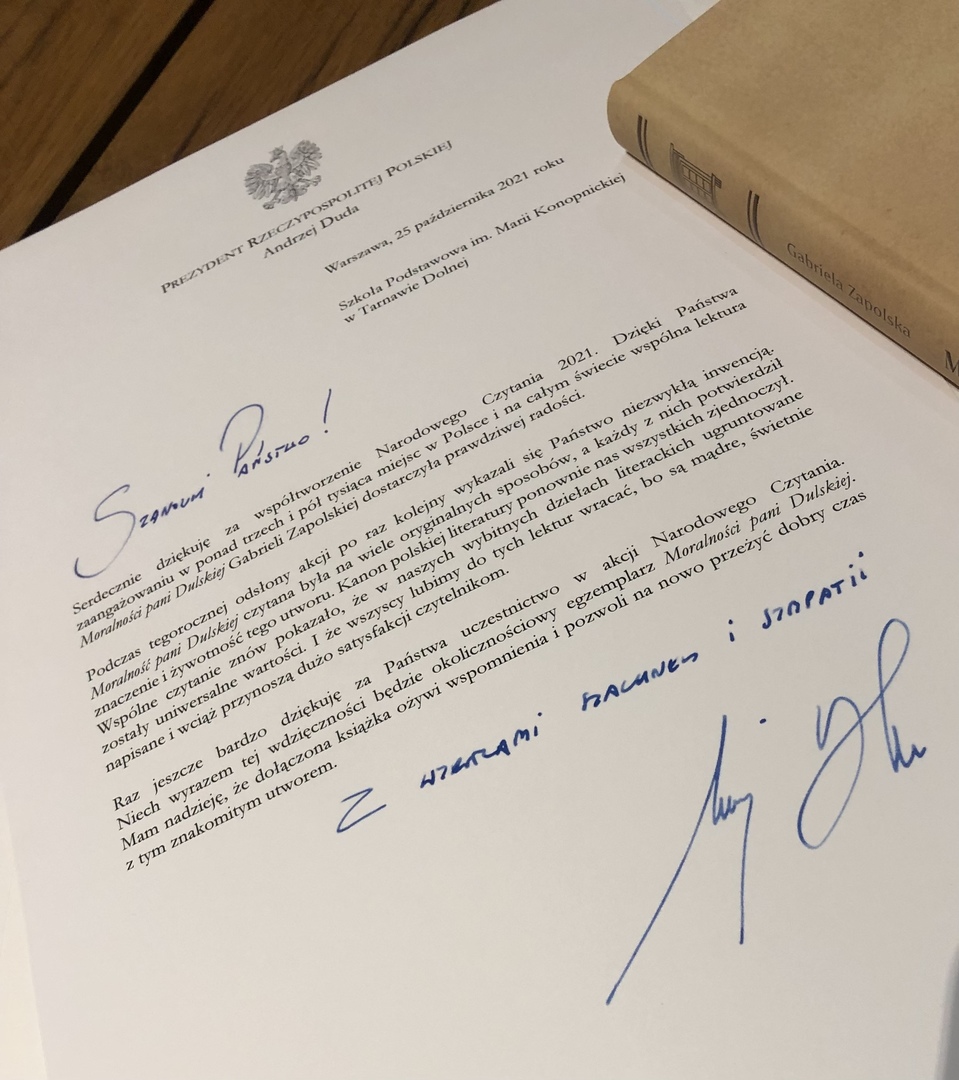 PREZYDENT RZECZYPOSPOLITEJ POLSKIEJ
Andrzej Duda
Warszawa, 25 października 2021 roku
Szkoła Podstawowa im. Marii Konopnickiej
w Tarnawie Dolnej
Szanowni Państwo!
Serdecznie dziękuję za współtworzenie Narodowego Czytania 2021. Dzięki Państwa
zaangażowaniu w ponad trzech i pół tysiąca miejsc w Polsce i na całym świecie wspólna lektura
Moralności pani Dulskiej Gabrieli Zapolskiej dostarczyła prawdziwej radości.
Podczas tegorocznej odsłony akcji po raz kolejny wykazali się Państwo niezwykłą inwencją.
Moralność pani Dulskiej czytana była na wiele oryginalnych sposobów, a każdy z nich potwierdził
znaczenie i żywotność tego utworu. Kanon polskiej literatury ponownie nas wszystkich zjednoczył.
Wspólne czytanie znów pokazało, że w naszych wybitnych dziełach literackich ugruntowane
zostały uniwersalne wartości. I że wszyscy lubimy do tych lektur wracać, bo są mądre, świetnie
napisane i wciąż przynoszą dużo satysfakcji czytelnikom.
Raz jeszcze bardzo dziękuję za Państwa uczestnictwo w akcji Narodowego Czytania.
Niech wyrazem tej wdzięczności będzie okolicznościowy egzemplarz Moralności pani Dulskiej.
Mam nadzieję, że dołączona książka ożywi wspomnienia i pozwoli na nowo przeżyć dobry czas
z tym znakomitym utworem.
Z wyrazami szacunku i sympatii
Gabriela Zapolska
M